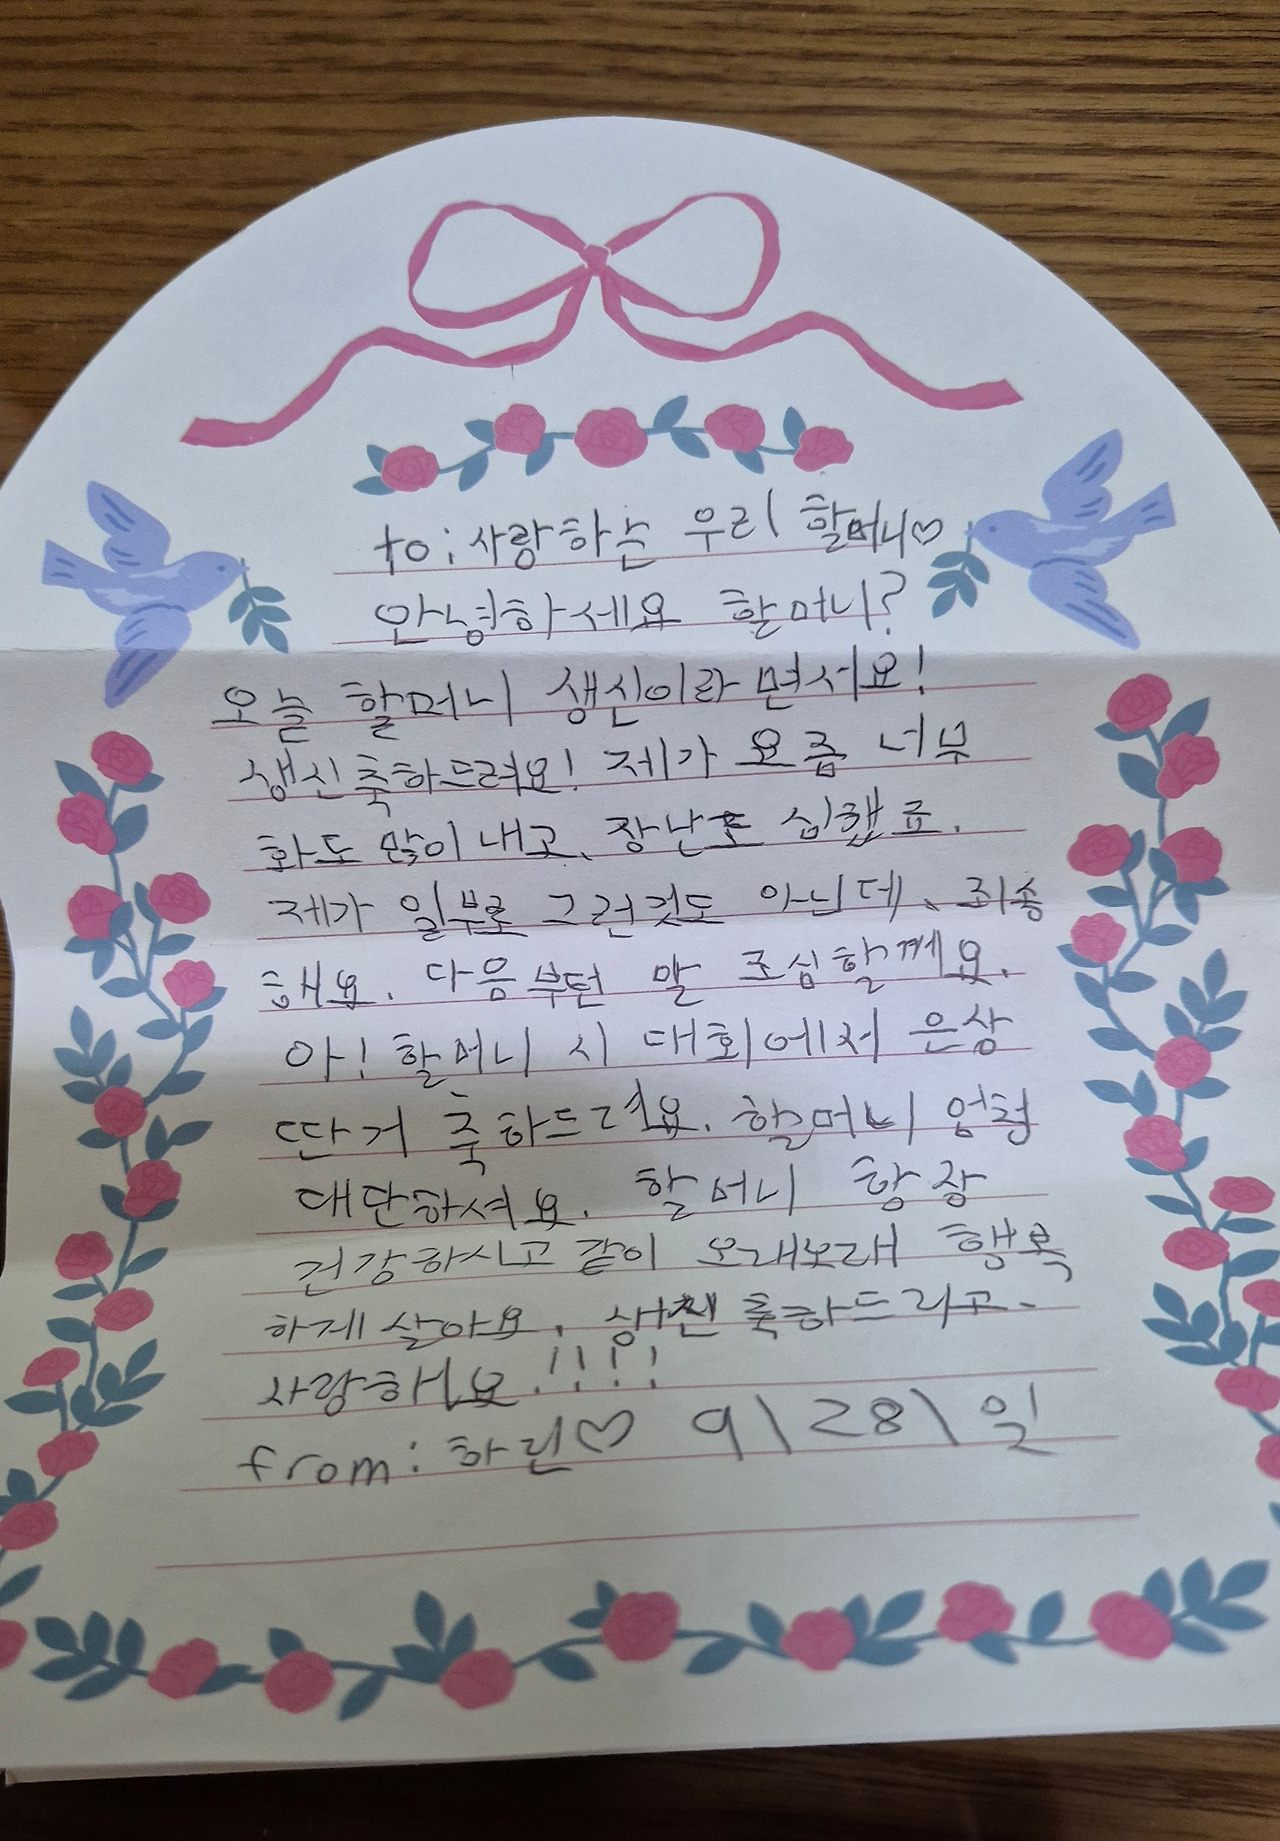 to: 사랑하는 우리 할머니♡
안녕하세요 할머니?
오늘 할머니 생신이라면서요!
생신축하드려요! 제가 요즘 너무
화도 많이 내고, 장난도 심했죠.
제가 일부로 그런것도 아닌데, 죄송
해요. 다음부턴 말 조심할께요.
아! 할머니 시 대회에서 은상
딴거 축하드려요. 할머니 엄청
대단하셔요. 할머니 항상
건강하시고 같이 오래오래 행복
하게 살아요. 생신 축하드리고.
사랑해요!!!!
from: 하린♡ 9\28\일